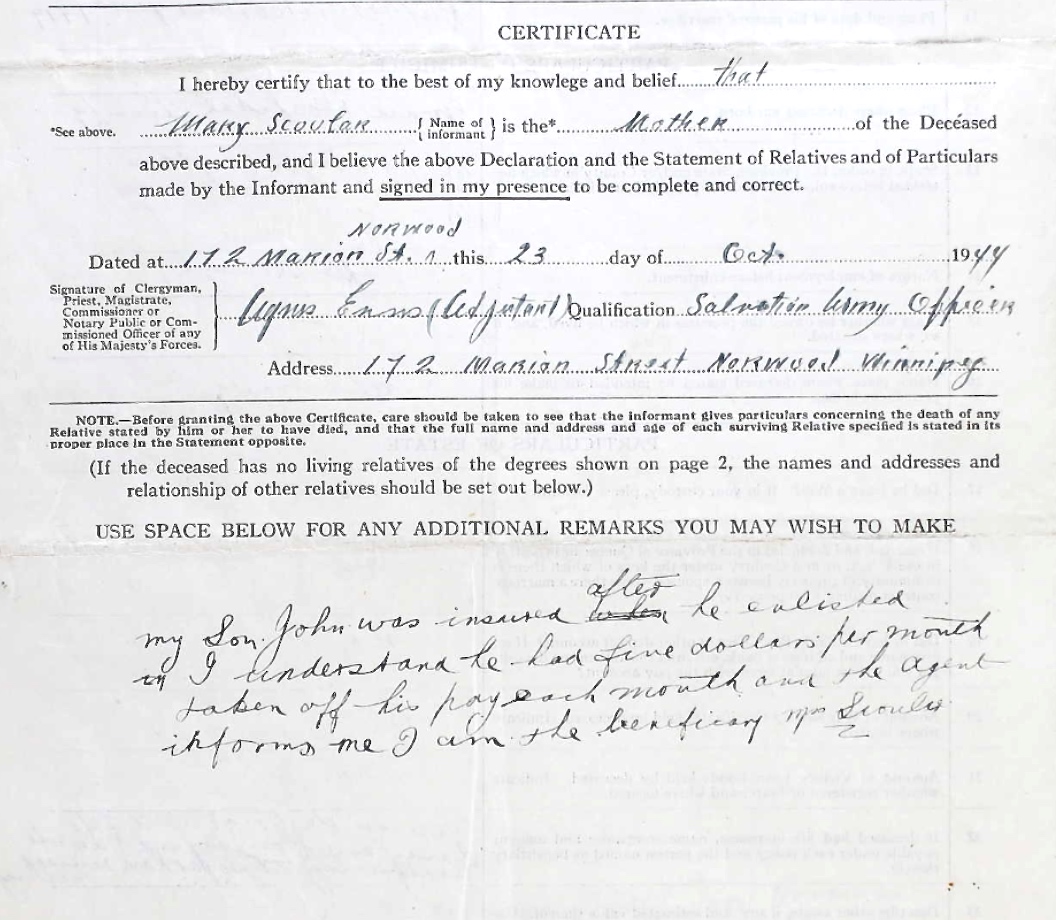 CERTIFICATE
I hereby certify that to the best of my knowlege and belief that
*See above. Mary Scoular { Name of informant } is the* Mother of the Deceased
above described, and I believe the above Declaration and the Statement of Relatives and of Particulars
made by the Informant and signed in my presence to be complete and correct.
Norwood
Dated at 172 Marion St. this 23 day of Oct. 1944
Signature of Clergyman,
Priest, Magistrate,
Commissioner or
Notary Public or Com-
missioned Officer of any
of His Majesty's Forces.
} Agnes Enns (Adjutant) Qualification Salvation Army Officer
Address 172 Marion Street Norwood Winnipeg
NOTE.—Before granting the above Certificate, care should be taken to see that the informant gives particulars concerning the death of any
Relative stated by him or her to have died, and that the full name and address and age of each surviving Relative specified is stated in its
proper place in the Statement opposite.
(If the deceased has no living relatives of the degrees shown on page 2, the names and addresses and
relationship of other relatives should be set out below.)
USE SPACE BELOW FOR ANY ADDITIONAL REMARKS YOU MAY WISH TO MAKE
after
my Son John was insured when he enlisted
I understand he had five dollars per month
taken off his pay each month and the agent
informs me I am the beneficary Mrs Scoular